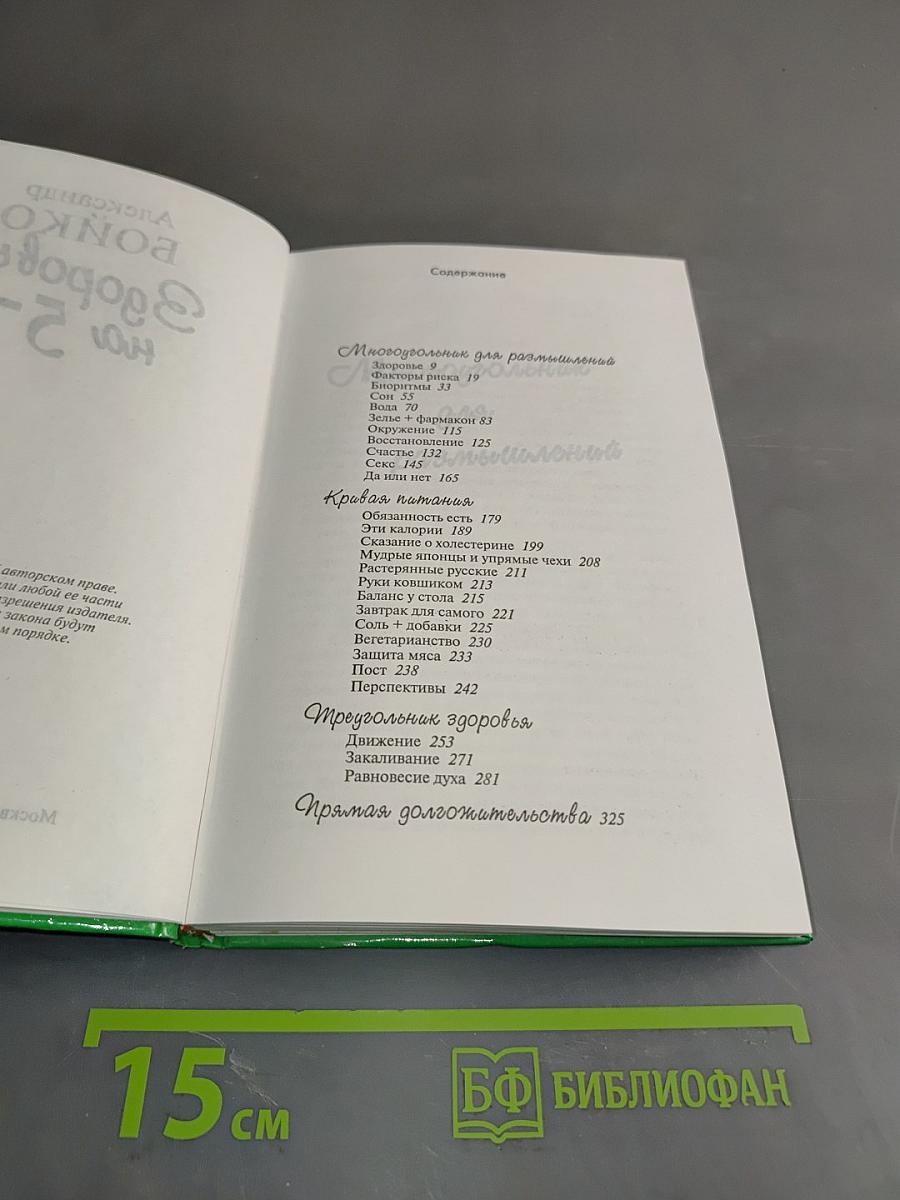 Александр
БОЙКО
Здоровь
на 5
авторском праве.
ли любой ее части
зрешения издателя.
закона будут
м порядке.
Москв
Содержание
Многоугольник для размышлений
Здоровье 9
Факторы риска 19
Биоритмы 33
Сон 55
Вода 70
Зелье + фармакон 83
Окружение 115
Восстановление 125
Счастье 132
Секс 145
Да или нет 165
Кривая питания
Обязанность есть 179
Эти калории 189
Сказание о холестерине 199
Мудрые японцы и упрямые чехи 208
Растерянные русские 211
Руки ковшиком 213
Баланс у стола 215
Завтрак для самого 221
Соль + добавки 225
Вегетарианство 230
Защита мяса 233
Пост 238
Перспективы 242
Треугольник здоровья
Движение 253
Закаливание 271
Равновесие духа 281
Прямая долгожительства 325
Многоугольник
для
размышлений
15 см
БФ БИБЛИОФАН